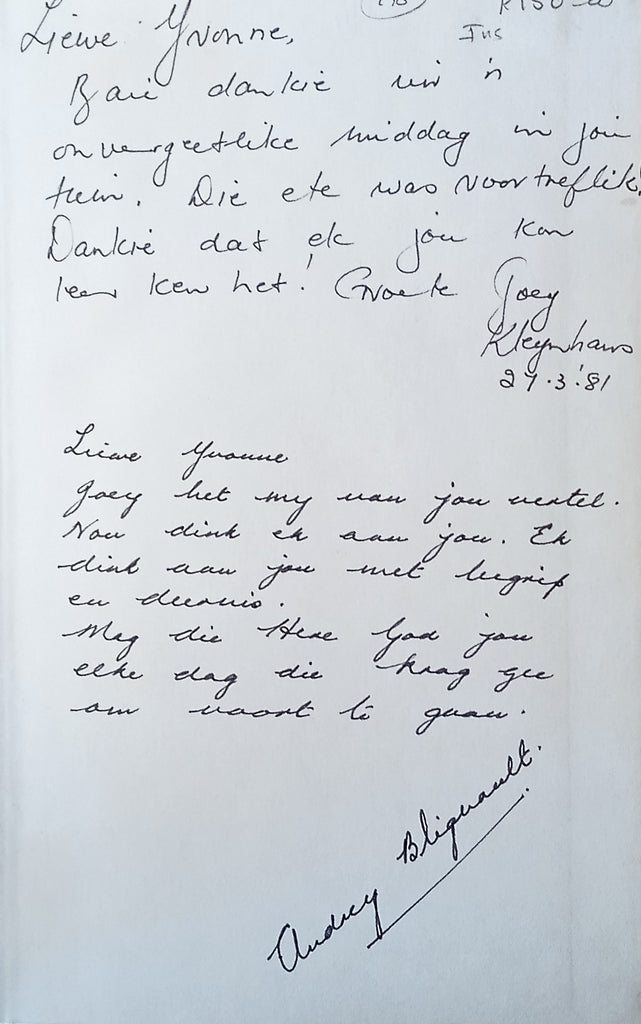 R150-00
Ins
Liewe Yvonne,
Baie dankie vir 'n
onvergeetlike middag in jou
tuin. Die ete was voortreflik!
Dankie dat ek jou kon
leer ken het! Groete Joey
Kleynhans
27.3.'81
Liewe Yvonne
Joey het my van jou vertel.
Nou dink ek aan jou. Ek
dink aan jou met begrip
en deernis.
Mag die Here God jou
elke dag die krag gee
om voort te gaan.
Audrey Blignault.